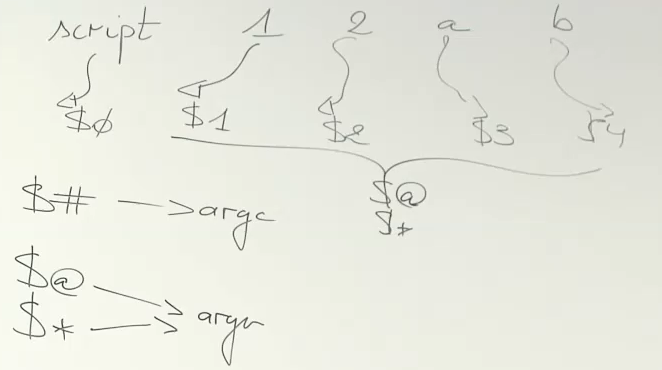 script 1 2 a b
$0 $1 $2 $3 $4
$@
$*
$# → argc
$@
$* → argv